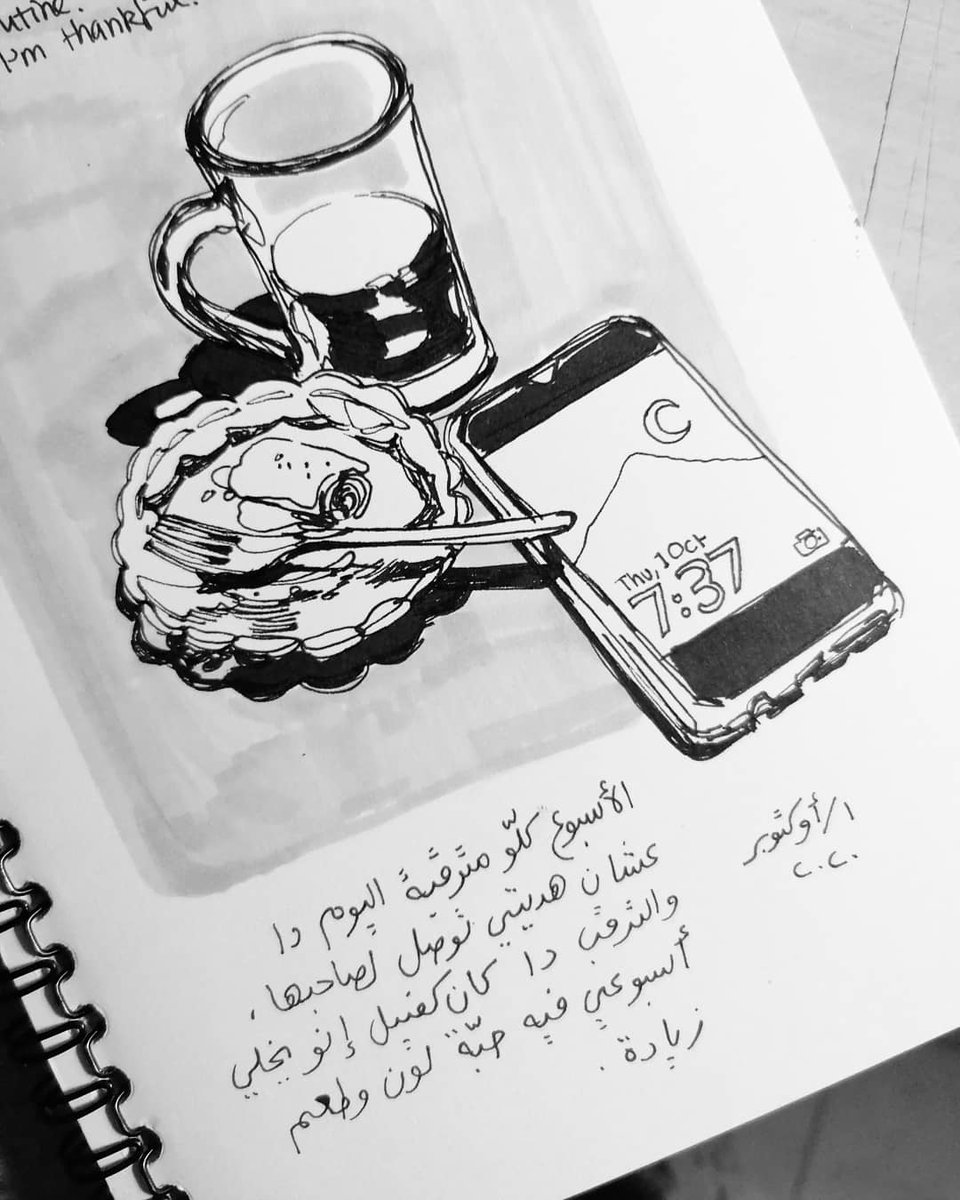 utine.
I'm thankful.
Thu, 1 Oct
7:37
١/أوكتوبر
٢٠٢٠
الأسبوع كلّو مترقبة اليوم دا
عشان هديتي توصل لصاحبها،
والترقب دا كان كفيل إنو يخلي
أسبوعي فيه حبّة لون وطعم
زيادة.